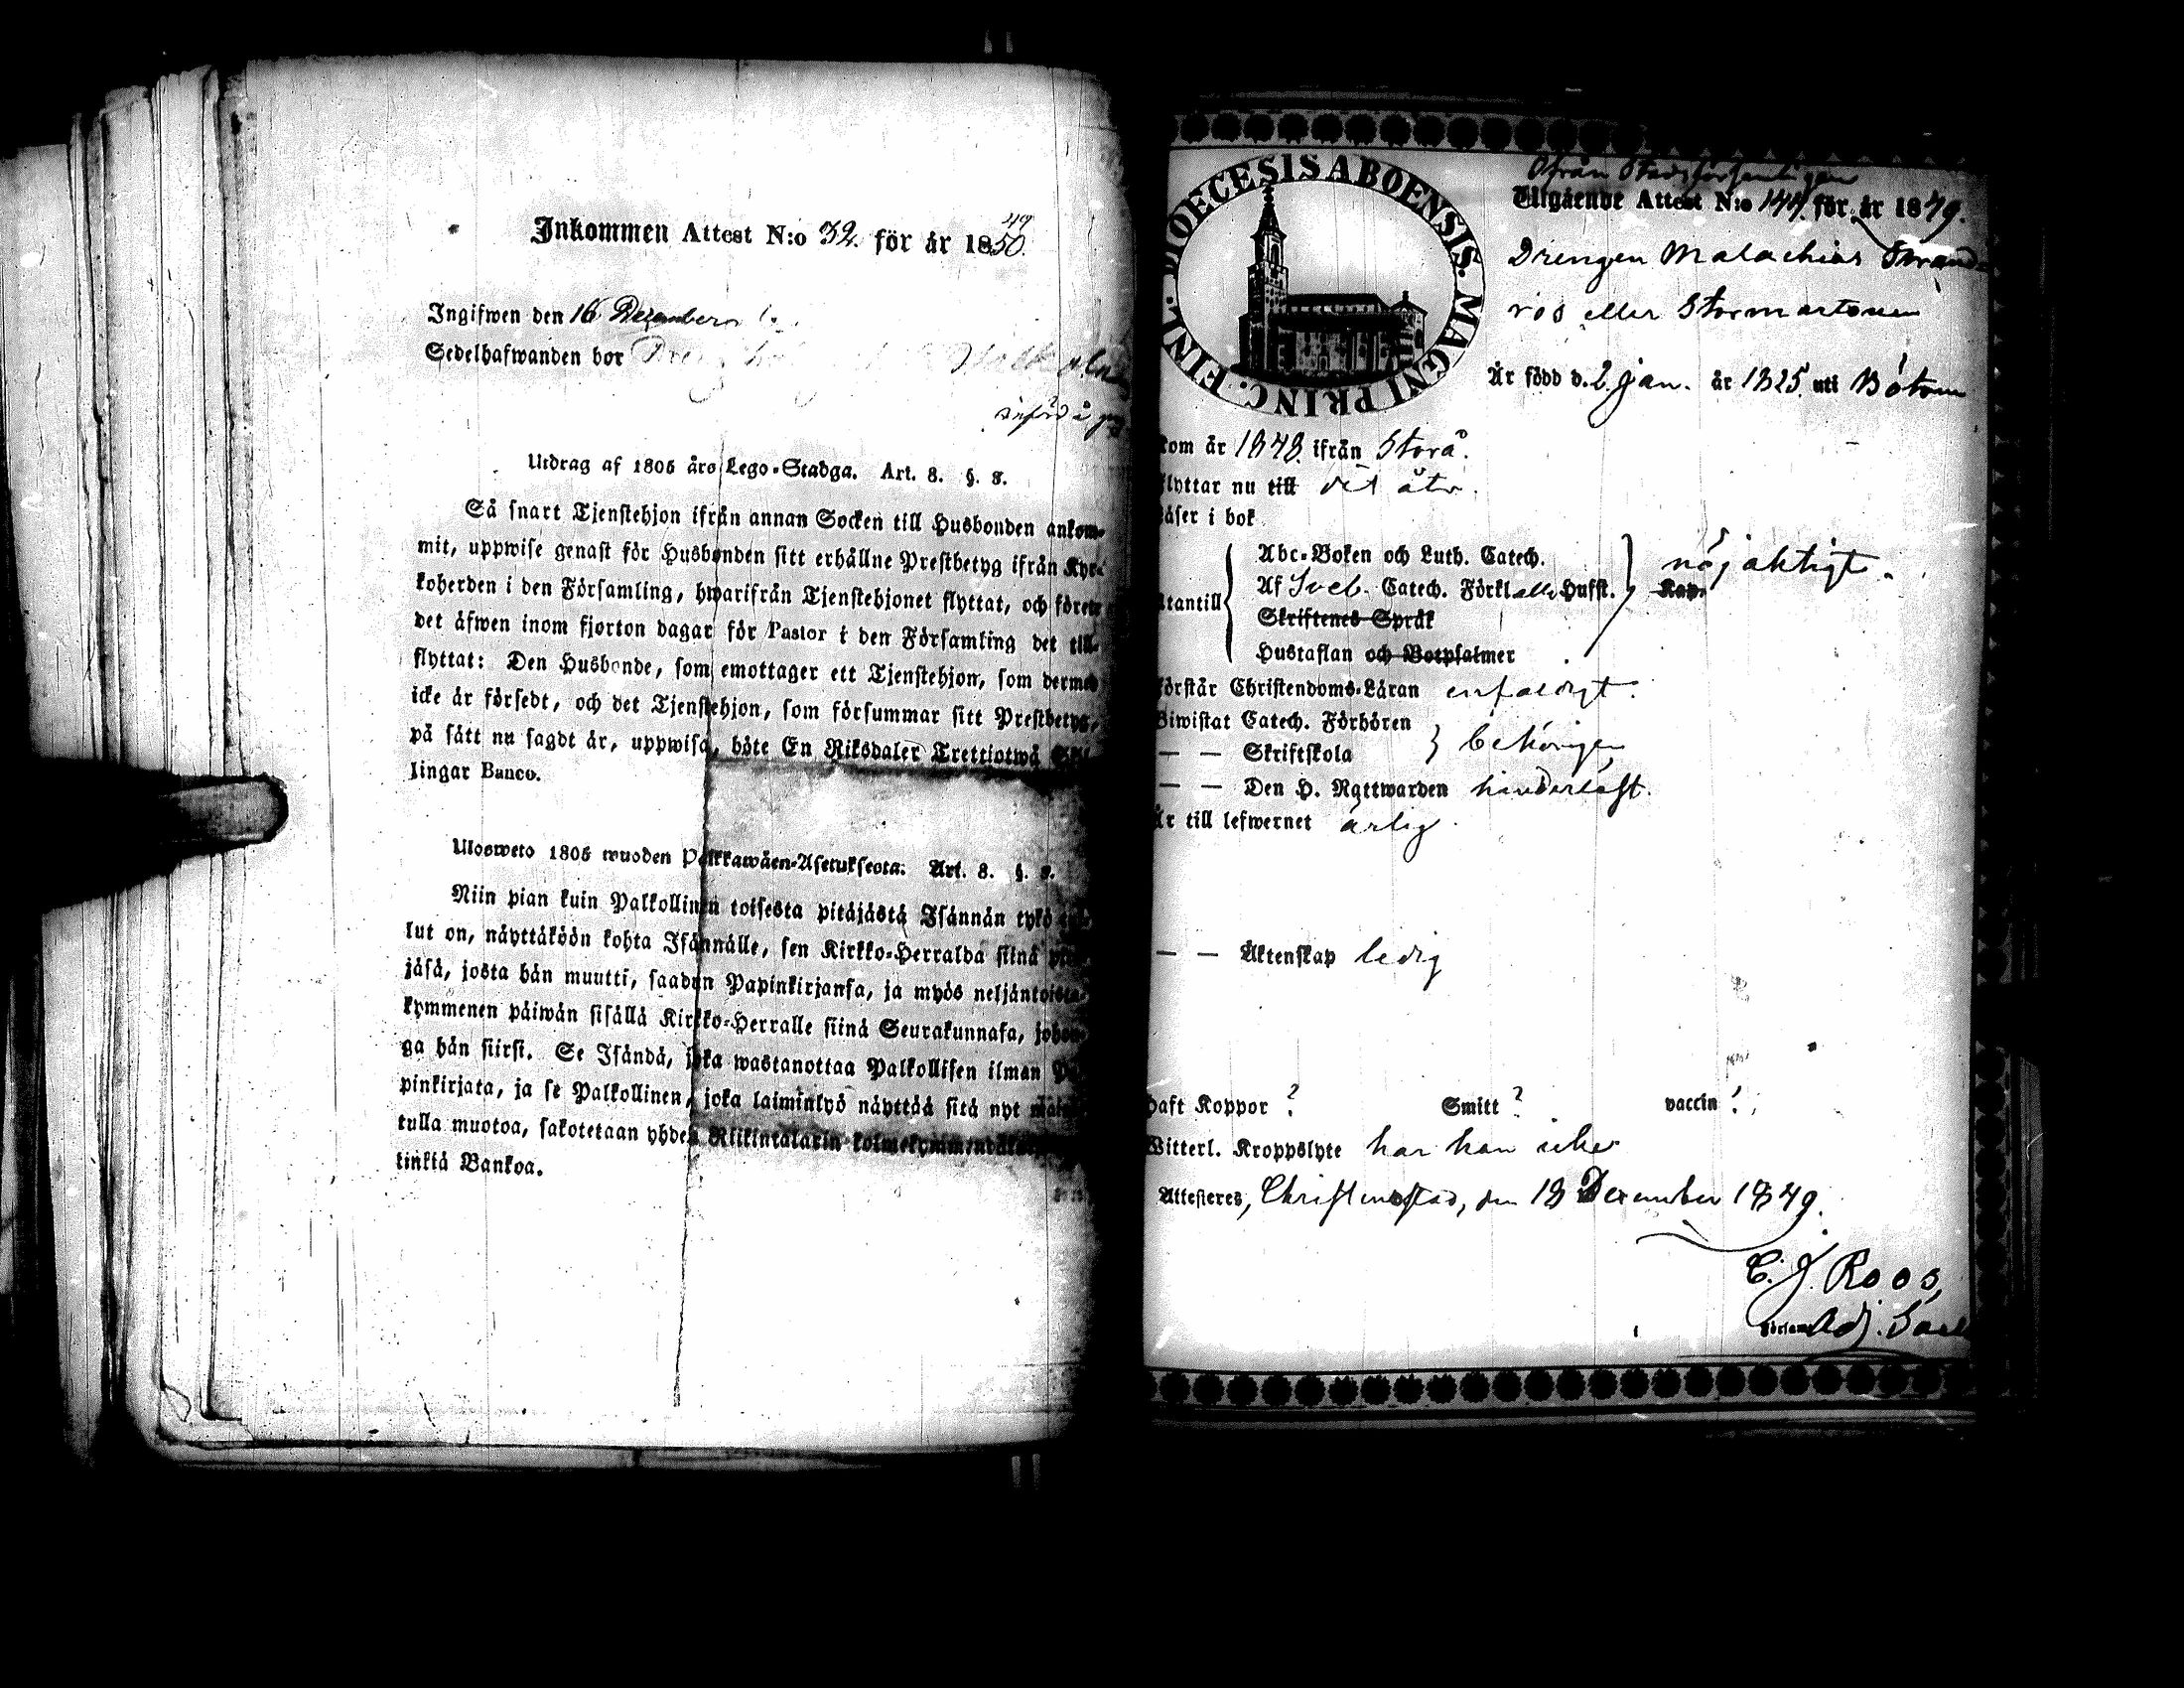 Inkommen Attest N:o 32. för år 1850.
49
Ingifwen den 16 December
Sedelhafwanden bor
införd å
Utdrag af 1805 års Lego-Stadga. Art. 8. §. 8.
Så snart Tjenstehjon ifrån annan Socken till Husbonden ankom-
mit, uppwise genast för Husbonden sitt erhållne Prestbetyg ifrån Kyr-
koherden i den Församling, hwarifrån Tjenstehjonet flyttat, och förete
det äfwen inom fjorton dagar för Pastor i den Församling det till-
flyttat: Den Husbonde, som emottager ett Tjenstehjon, som dermed
icke är försedt, och det Tjenstehjon, som försummar sitt Prestbetyg,
på sätt nu sagdt är, uppwisa, böte En Riksdaler Trettiotwå Skil-
lingar Banco.
Ulosweto 1805 wuoden Palkkawäen-Asetuksesta. Art. 8. §. 8.
Niin pian kuin Palkollinen toisesta pitäjästä Isännän tykö
lut on, näyttäköön kohta Isännälle, sen Kirkko-Herralda siinä
jäsä, josta hän muutti, saadun Papinkirjansa, ja myös neljäntoista-
kymmenen päiwän sisällä Kirkko-Herralle siinä Seurakunnasa, johon-
ga hän siirsi. Se Isändä, joka wastanottaa Palkollisen ilman Pa-
pinkirjata, ja se Palkollinen, joka laiminlyö näyttää sitä nyt
tulla muotoa, sakotetaan yhden Riikintalarin
linkiä Bankoa.
DIOECESIS ABOENSIS. MAGNI PRINC. FINL.
ifrån Stadsförsamlingen
Utgående Attest N:o 144. för år 1849.
Drengen Malachias Strand-
ros eller Stormartonen
Är född d. 2 Jan. år 1825. uti Bötom
kom år 1848. ifrån Storå.
flyttar nu till dit åter.
läser i bok
Abc-Boken och Luth. Catech.
nöjaktigt.
Utantill Af Sveb. Catech. Förkl alla Hufst. Kap.
Skriftenes Språk
Hustaflan och Botpsalmer
Förstår Christendoms-Läran enfaldigt.
Biwistat Catech. Förhören
— — Skriftskola behörigen
— — Den H. Nattwarden hinderlöst.
Är till lefwernet ärlig.
— — Äktenskap ledig
haft Koppor ? Smitt ? vaccin ?
Witterl. Kroppslyte har han icke
Attesteres, Christinestad, den 13 December 1849.
C. J. Roos,
Församl. Adj.